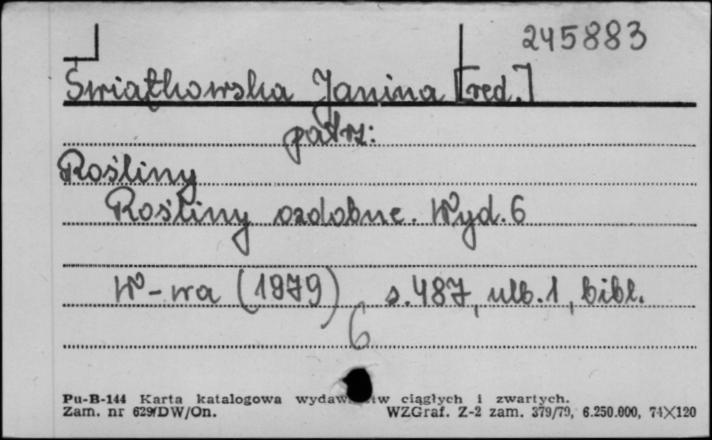 245883
Świątkowska Janina [red.]
patrz:
Rośliny
Rośliny ozdobne. Wyd. 6
W-wa (1979) s. 487, ulb. 1, bibl.
6
Pu-B-144 Karta katalogowa wydawnictw ciągłych i zwartych.
Zam. nr 629/DW/On. WZGraf. Z-2 zam. 379/79, 6.250.000, 74X120